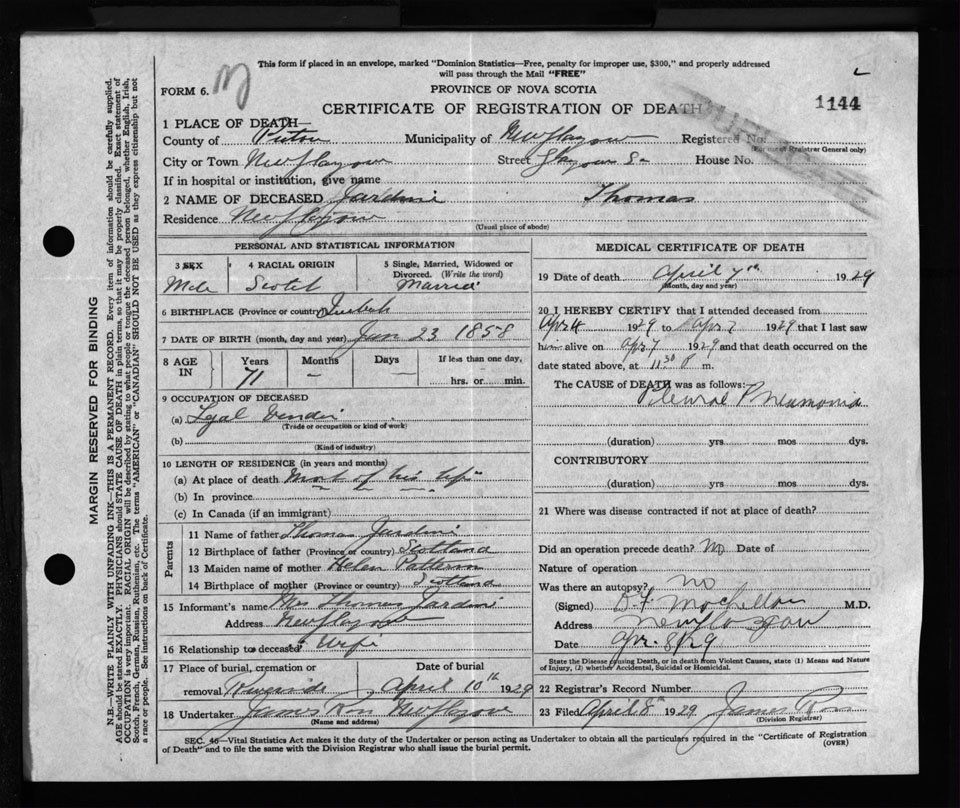 This form if placed in an envelope, marked "Dominion Statistics—Free, penalty for improper use, $300," and properly addressed
will pass through the Mail "FREE"
FORM 6.
PROVINCE OF NOVA SCOTIA
CERTIFICATE OF REGISTRATION OF DEATH
1144
1 PLACE OF DEATH—
County of Pictou Municipality of New Glasgow Registered No.
(For use of Registrar General only)
City or Town New Glasgow Street Glasgow St House No.
If in hospital or institution, give name
2 NAME OF DECEASED Jardine Thomas
Residence New Glasgow
(Usual place of abode)
PERSONAL AND STATISTICAL INFORMATION
3 SEX
Male
4 RACIAL ORIGIN
Scotch
5 Single, Married, Widowed or
Divorced. (Write the word)
Married
6 BIRTHPLACE (Province or country)
7 DATE OF BIRTH (month, day and year) Jan 23 1858
8 AGE IN
Years Months Days If less than one day,
71 – – hrs. or min.
9 OCCUPATION OF DECEASED
(a)
(Trade or occupation or kind of work)
(b)
(Kind of industry)
10 LENGTH OF RESIDENCE (in years and months)
(a) At place of death Most of his life
(b) In province
(c) In Canada (if an immigrant)
Parents
11 Name of father Thomas Jardine
12 Birthplace of father (Province or country) Scotland
13 Maiden name of mother Helen Patterson
14 Birthplace of mother (Province or country) Scotland
15 Informant's name Mrs Thomas Jardine
Address New Glasgow
16 Relationship to deceased Wife
17 Place of burial, cremation or Date of burial
removal Riverside, April 10th 1929
18 Undertaker James Ross New Glasgow
(Name and address)
MEDICAL CERTIFICATE OF DEATH
19 Date of death April 7th 1929
(Month, day and year)
20 I HEREBY CERTIFY that I attended deceased from
Apr 4 1929 to Apr 7 1929 that I last saw
him alive on Apr 7 1929 and that death occurred on the
date stated above, at 11 30 P m.
The CAUSE of DEATH was as follows:
Pleural Pneumonia
(duration) yrs mos dys.
CONTRIBUTORY
(duration) yrs mos dys.
21 Where was disease contracted if not at place of death?
Did an operation precede death? No Date of
Nature of operation
Was there an autopsy? no
(Signed) M.D.
Address New Glasgow
Date Apr. 8/29
State the Disease causing Death, or in death from Violent Causes, state (1) Means and Nature
of Injury, (2) whether Accidental, Suicidal or Homicidal.
22 Registrar's Record Number
23 Filed April 8th 1929 James Ross
(Division Registrar)
SEC. 46—Vital Statistics Act makes it the duty of the Undertaker or person acting as Undertaker to obtain all the particulars required in the "Certificate of Registration
of Death" and to file the same with the Division Registrar who shall issue the burial permit.
(OVER)
MARGIN RESERVED FOR BINDING
N.B.—WRITE PLAINLY WITH UNFADING INK—THIS IS A PERMANENT RECORD. Every item of information should be carefully supplied.
AGE should be stated EXACTLY. PHYSICIANS should STATE CAUSE OF DEATH in plain terms, so that it may be properly classified. Exact statement of
OCCUPATION is very important. RACIAL ORIGIN will be described by stating to what people or tongue the deceased person belonged, whether English, Irish,
Scotch, French, German, Russian, Ruthenian, etc. The terms "AMERICAN" or "CANADIAN" SHOULD NOT BE USED as they express citizenship but not
a race or people. See instructions on back of Certificate.